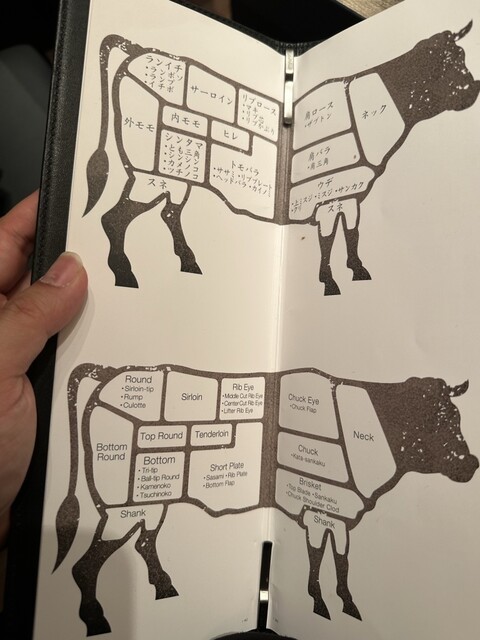 ランイチ
・ランボソ
・ランプ
・イチボ
サーロイン
リブロース
・マキ
・リブ芯
・リブかぶり
外モモ
内モモ
ヒレ
シンタマ
・とも三角
・シンシン
・カメノコ
・ツチノコ
トモバラ
・ササミ・リブプレート
・ヘッドバラ・カイノミ
スネ
肩ロース
・ザブトン
ネック
肩バラ
・肩三角
ウデ
・上ミスジ・ミスジ・サンカク
スネ
Round
・Sirloin-tip
・Rump
・Culotte
Sirloin
Rib Eye
・Middle Cut Rib Eye
・CenterCut Rib Eye
・Lifter Rib Eye
Bottom
Round
Top Round
Tenderloin
Bottom
・Tri-tip
・Ball-tip Round
・Kamenoko
・Tsuchinoko
Short Plate
・Sasami ・Rib Plate
・Bottom Flap
Shank
Chuck Eye
・Chuck Flap
Neck
Chuck
・Kata-sankaku
Brisket
・Top Blade ・Sankaku
・Chuck Shoulder Clod
Shank